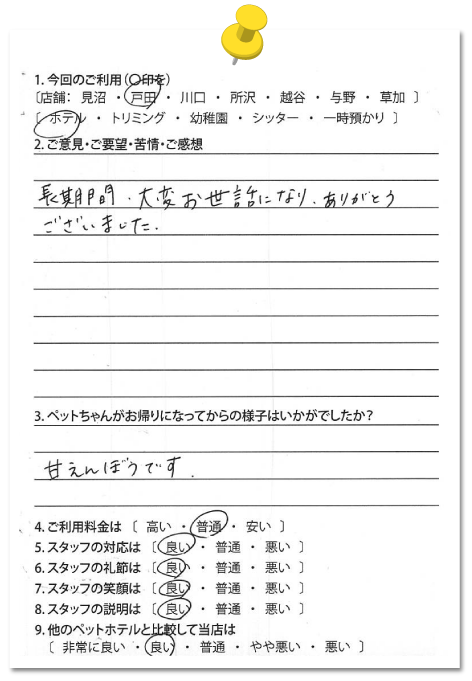 1. 今回のご利用(〇印を)
〔店舗： 見沼 ・ 戸田 ・ 川口 ・ 所沢 ・ 越谷 ・ 与野 ・ 草加 〕
〔 ホテル ・ トリミング ・ 幼稚園 ・ シッター ・ 一時預かり 〕
2. ご意見・ご要望・苦情・ご感想
長期間、大変お世話になり、ありがとう
ございました.
3. ペットちゃんがお帰りになってからの様子はいかがでしたか？
甘えんぼうです.
4. ご利用料金は 〔 高い ・ 普通 ・ 安い 〕
5. スタッフの対応は 〔 良い ・ 普通 ・ 悪い 〕
6. スタッフの礼節は 〔 良い ・ 普通 ・ 悪い 〕
7. スタッフの笑顔は 〔 良い ・ 普通 ・ 悪い 〕
8. スタッフの説明は 〔 良い ・ 普通 ・ 悪い 〕
9. 他のペットホテルと比較して当店は
〔 非常に良い ・ 良い ・ 普通 ・ やや悪い ・ 悪い 〕